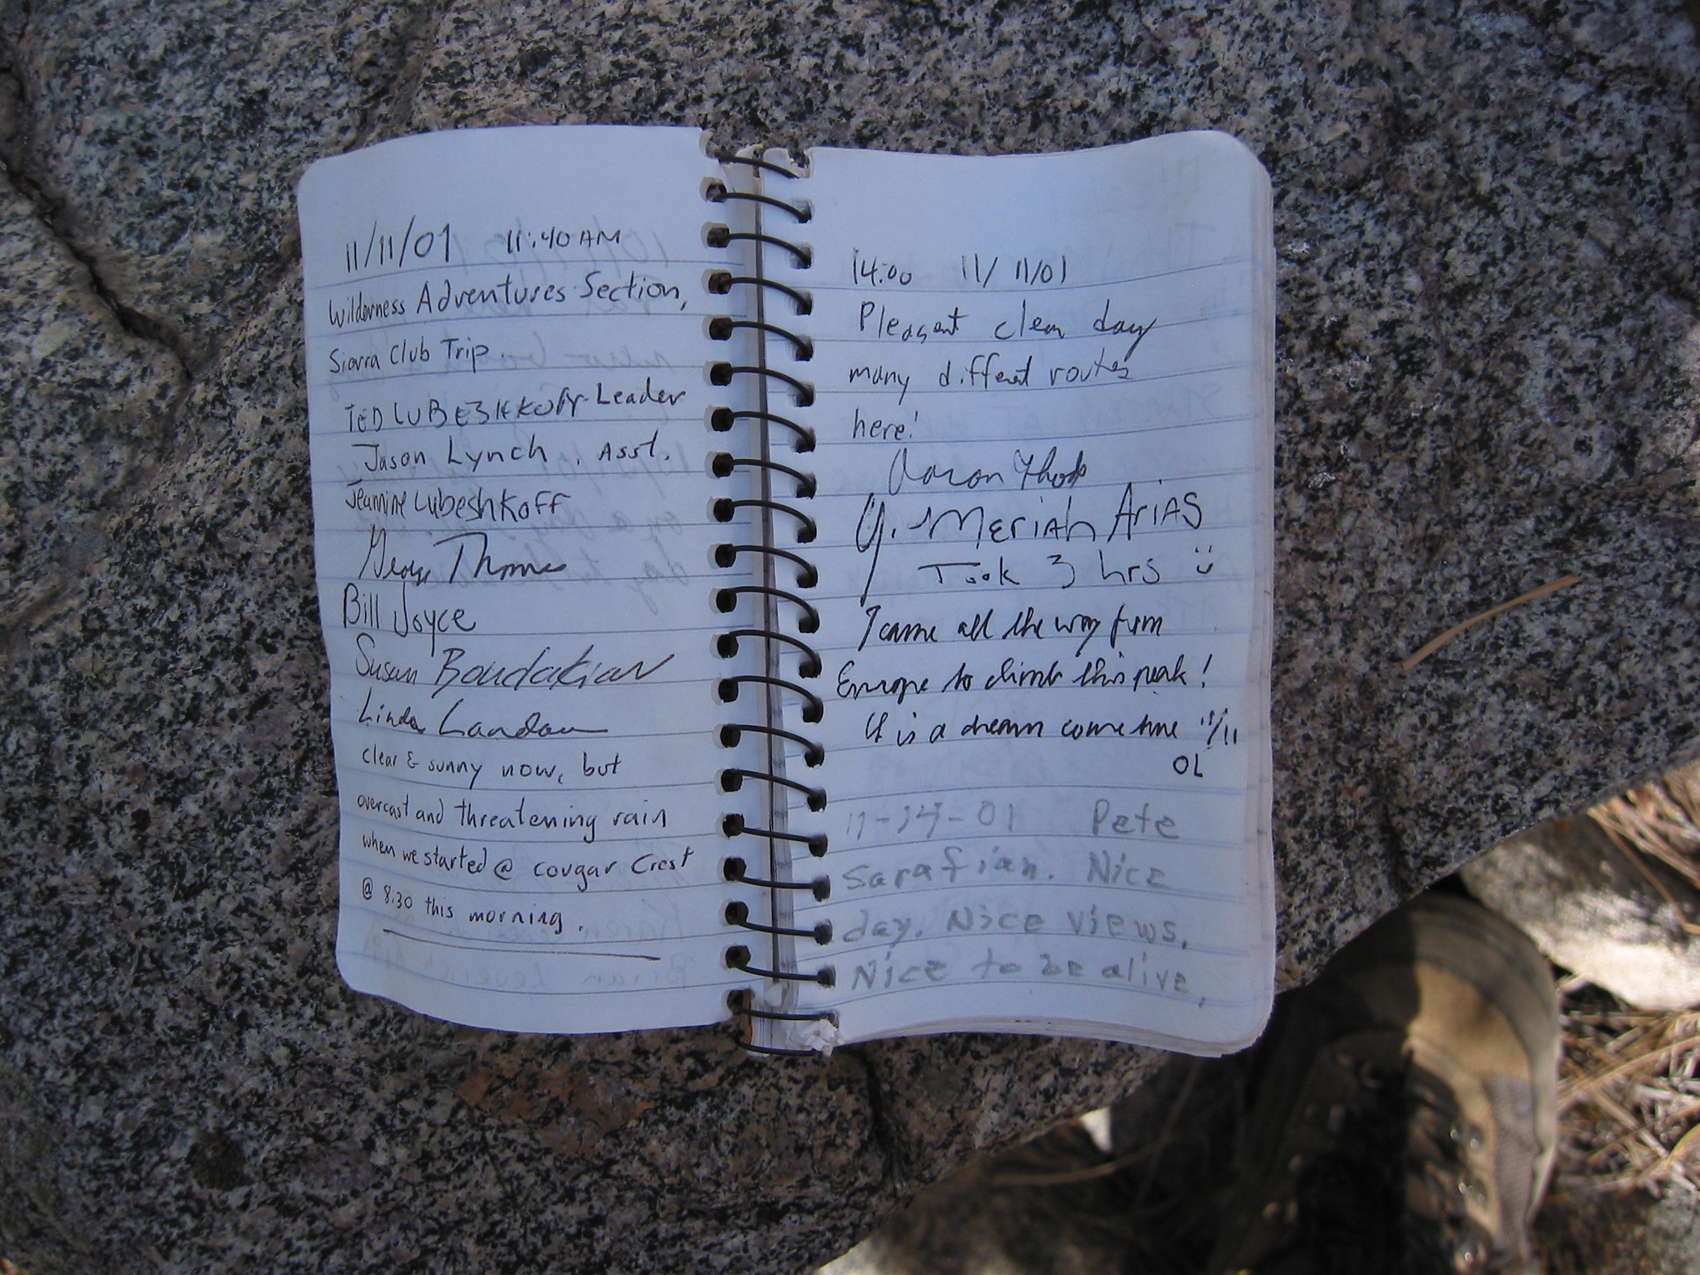 11/11/01 11:40 AM
Wilderness Adventures Section,
Sierra Club Trip.
TED LUBESHKOFF-Leader
Jason Lynch, Asst.
Jeannine Lubeshkoff
George Thomas
Bill Joyce
Susan Boudakian
Linda Landau
clear & sunny now, but
overcast and threatening rain
when we started @ Cougar Crest
@ 8:30 this morning.
14:00 11/11/01
Pleasent clear day
many different routes
here!
Aaron
Y. MERIAH ARIAS
Took 3 hrs
I came all the way from
Europe to climb this peak!
It is a dream come true 11/11
01
11-14-01 Pete
Sarafian. Nice
day. Nice views.
Nice to be alive.